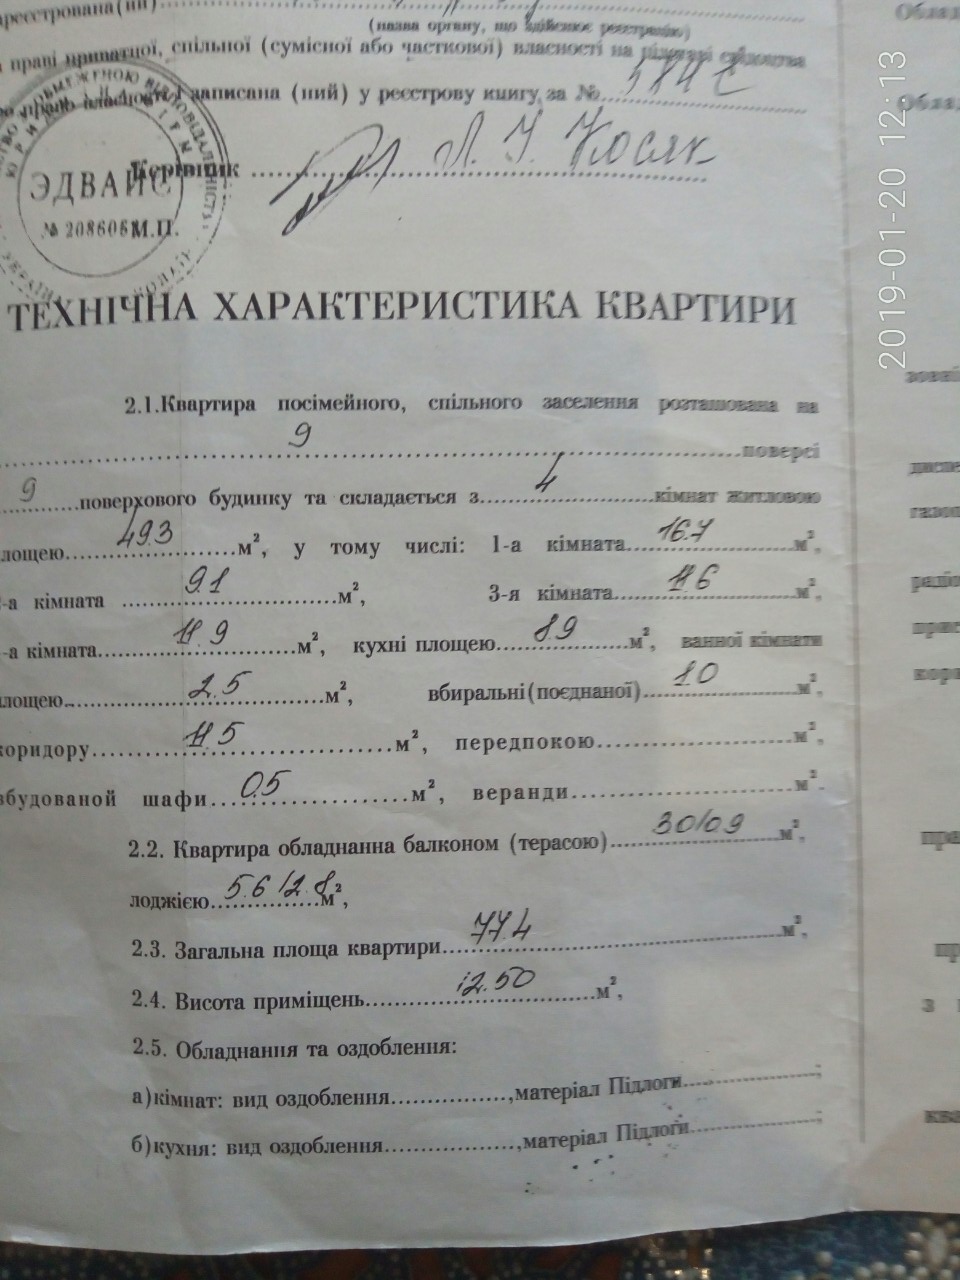 реєстрована(ий)
(назва органу, що здійснює реєстрацію)
праві приватної, спільної (сумісної або часткової) власності на підставі свідоцтва
про право власності і записана (ний) у реєстрову книгу за №
Керівник Л. У. Косяк
ЭДВАЙС
№ 208605 М.П.
2019-01-20 12:13
ТЕХНІЧНА ХАРАКТЕРИСТИКА КВАРТИРИ
2.1.Квартира посімейного, спільного заселення розташована на
9 поверсі
9 поверхового будинку та складається з 4 кімнат житловою
лощею 49.3 м², у тому числі: 1-а кімната 16.7 м²,
-а кімната 9.1 м², 3-я кімната 11.6 м²,
-а кімната 11.9 м², кухні площею 8.9 м², ванної кімнати
лощею 2.5 м², вбиральні(поєднаної) 1.0 м²,
коридору 11.5 м², передпокою м²,
вбудованой шафи 0.5 м², веранди м².
2.2. Квартира обладнанна балконом (терасою) 3.0/0.9 м²,
лоджією 5.6/2.8 м²,
2.3. Загальна площа квартири 77.4 м²,
2.4. Висота приміщень 2.50 м²,
2.5. Обладнання та оздоблення:
а)кімнат: вид оздоблення ,матеріал Підлоги ;
б)кухня: вид оздоблення ,матеріал Підлоги ;